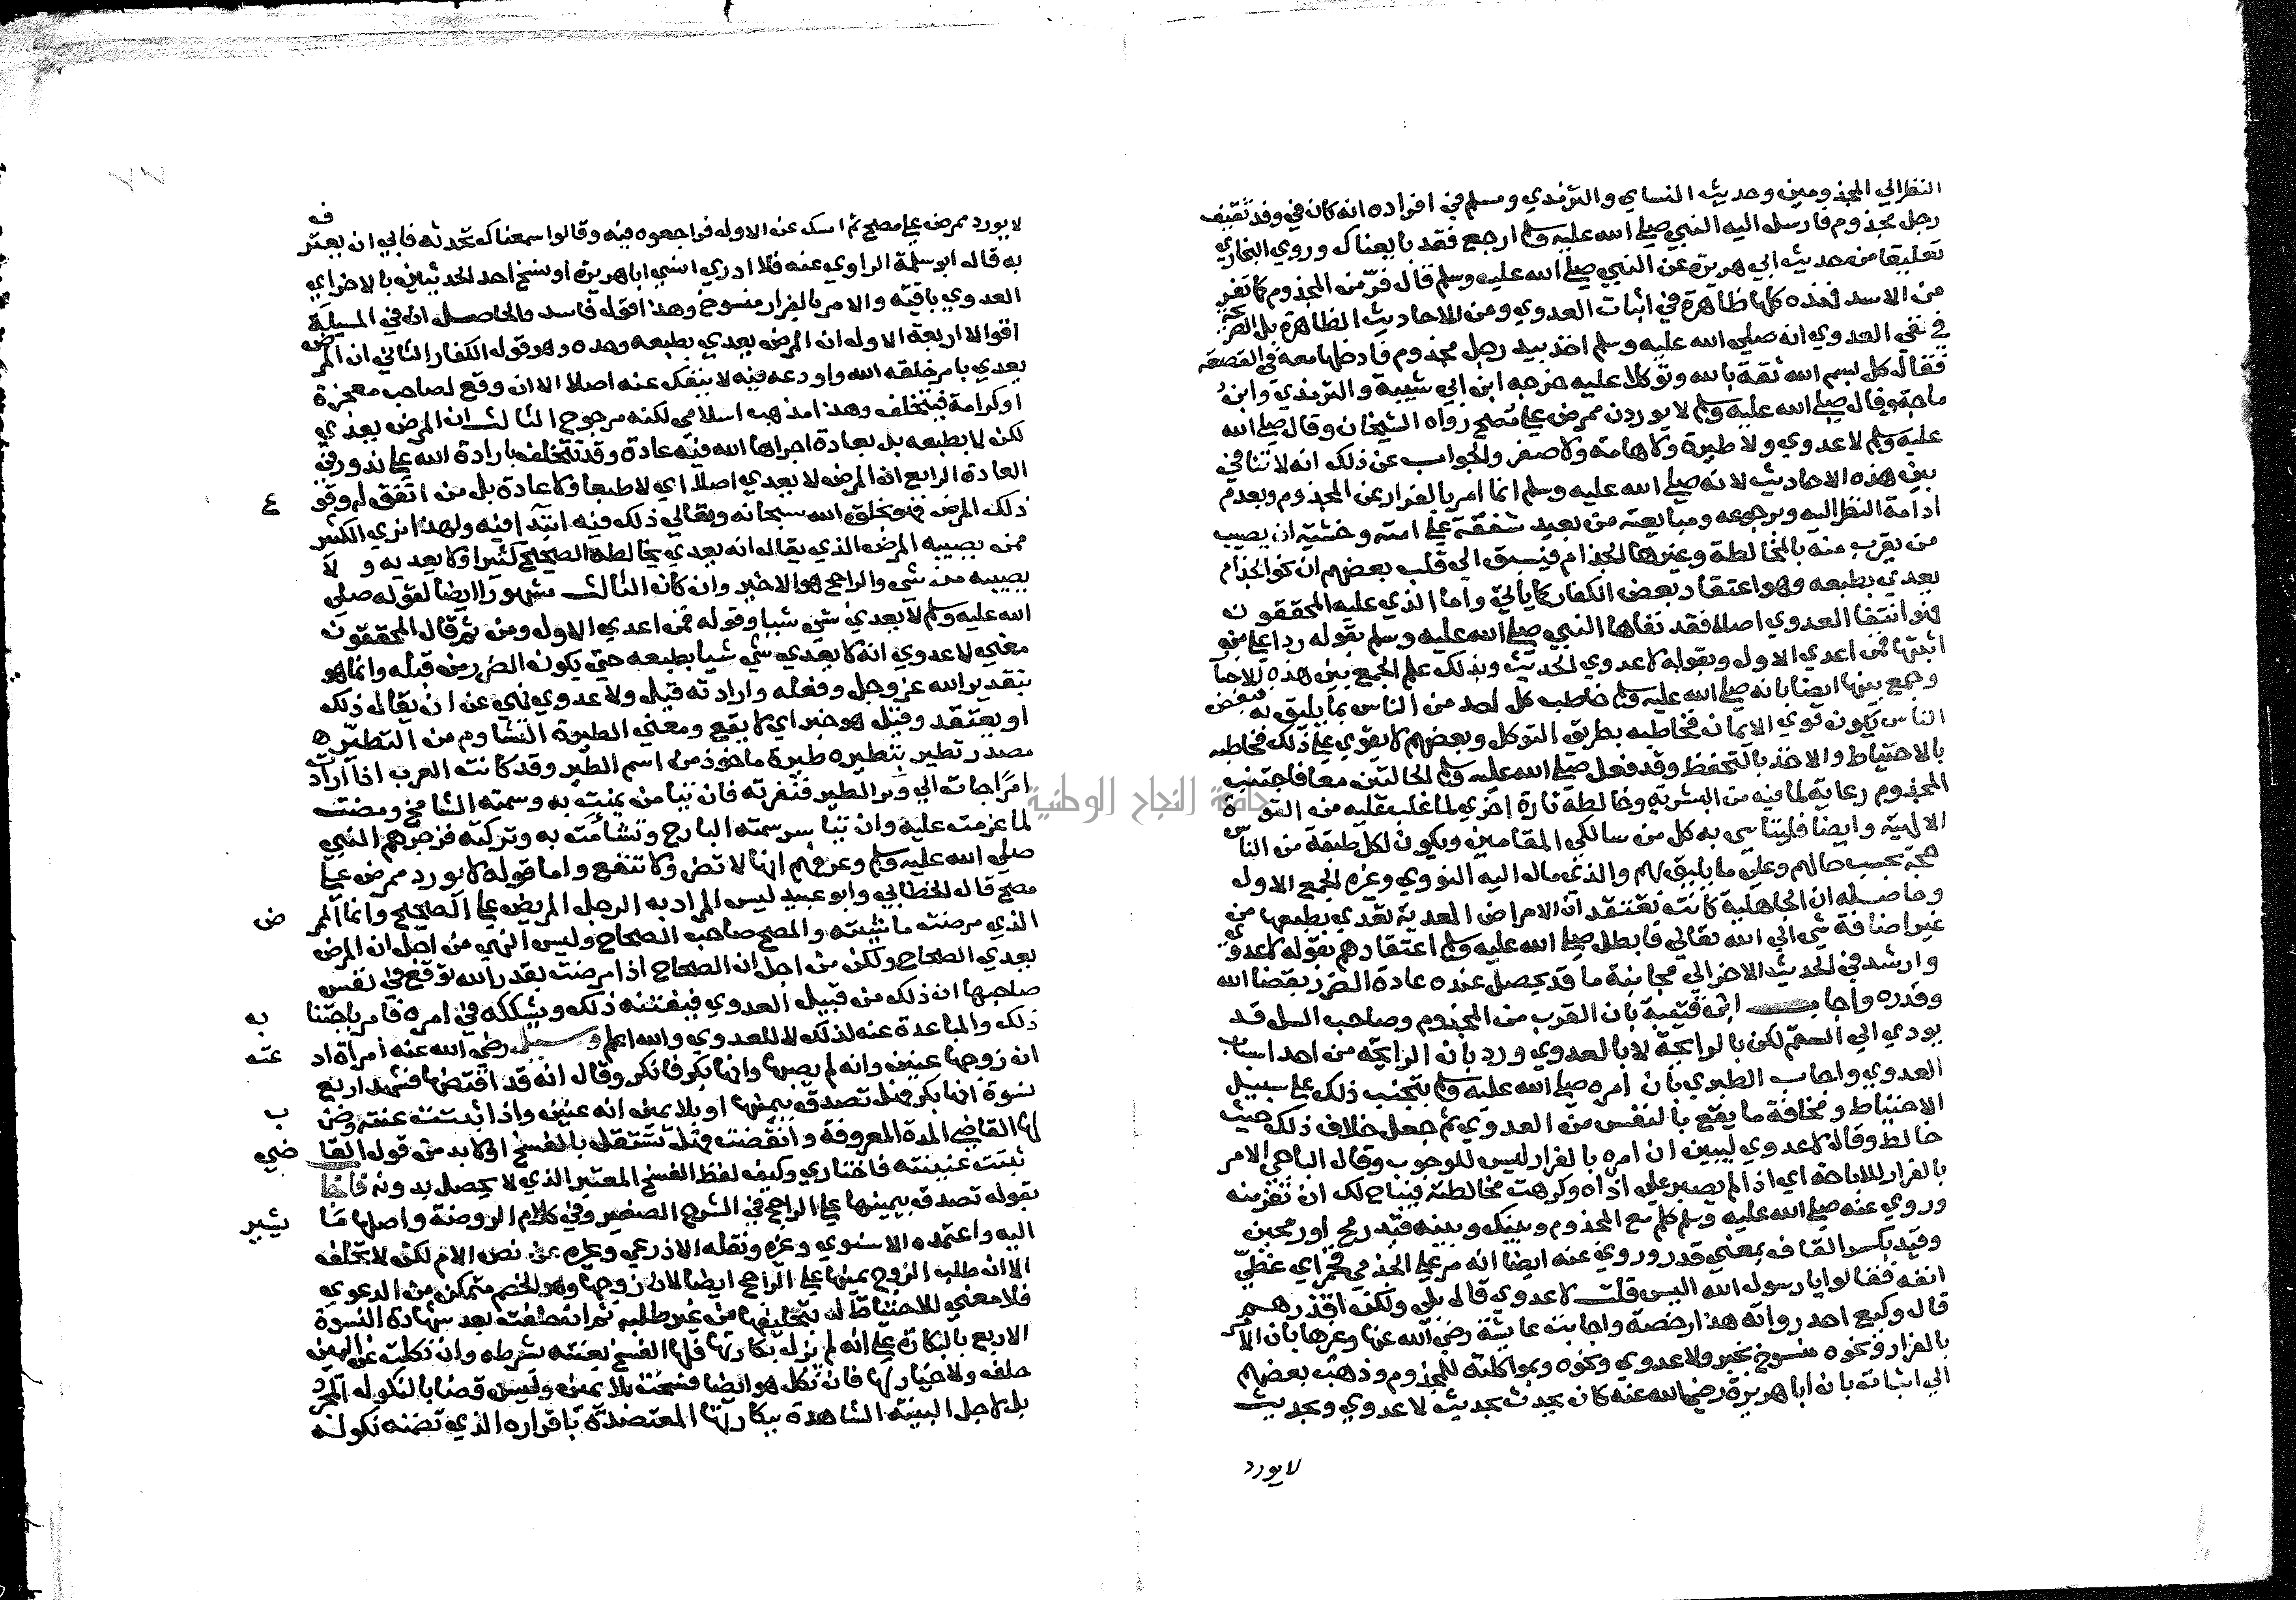 النظر الي المجذومين وحديث النساي والترمذي ومسلم في افراده انه كان في وفد ثقيف
رجل مجذوم فارسل اليه النبي صلي الله عليه وسلم ارجع فقد بايعناك وروي البخاري
تعليقا من حديث ابي هريرة عن النبي صلي الله عليه وسلم قال فرّ من المجذوم كما تفر
من الاسد فهذه كلها ظاهرة في اثبات العدوي ومن الاحاديث الظاهرة بل الصريحة
في نفي العدوي انه صلي الله عليه وسلم اخذ بيد رجل مجذوم فادخلها معه في القصعة
فقال كل بسم الله ثقة بالله وتوكلا عليه خرجه ابن ابي شيبة والترمذي وابن
ماجة وقال صلي الله عليه وسلم لا يوردن ممرض علي مصح رواه الشيخان وقال صلي الله
عليه وسلم لا عدوي ولا طيرة ولا هامة ولا صفر والجواب عن ذلك انه لا تنافي
بين هذه الاحاديث لانه صلي الله عليه وسلم انما امر بالفرار عن المجذوم وبعدم
ادامة النظر اليه وبرجوعه ومبايعته من بعيد شفقة علي امته وخشية ان يصيب
من يقرب منه بالمخالطة وغيرها الجذام فيسبق الي قلب بعضهم ان نحو الجذام
يعدي بطبعه وهو اعتقاد بعض الكفار كما ياتي واما الذي عليه المحققون
فهو انتفا العدوي اصلا فقد نفاها النبي صلي الله عليه وسلم بقوله ردا علي من
اثبتها فمن اعدي الاول وبقوله لا عدوي الحديث وبذلك علم الجمع بين هذه الاحا
وجمع بينها ايضا بانه صلي الله عليه وسلم خاطب كل احد من الناس بما يليق به فبعض
الناس يكون قوي الايمان فخاطبه بطريق التوكل وبعضهم لا يقوي علي ذلك فخاطبه
بالاحتياط والاخذ بالتحفظ وقد فعل صلي الله عليه وسلم الحالتين معا فاجتنب
المجذوم رعاية لما فيه من البشرية وخالطه تارة اخري لما غلب عليه من القوة
الالهية وايضا فليتاسي به كل من سالكي المقامين ويكون لكل طبقة من الناس
حجة بحسب حالهم وعلي ما يليق بهم والذي مال اليه النووي وغيره الجمع الاول
وحاصله ان الجاهلية كانت تعتقد ان الامراض المعدية تعدي بطبعها من
غير اضافة شي الي الله تعالي فابطل صلي الله عليه وسلم اعتقادهم بقوله لا عدوي
وارشد في الحديث الاخر الي مجانبة ما قد يحصل عنده عادة الضرر بقضا الله
وقدره واجاب ابن قتيبة بان القرب من المجذوم وصاحب السل قد
يودي الي السقم لكن بالرايحة لا بالعدوي ورد بان الرايحة من احد اسباب
العدوي واجاب الطبري بان امره صلي الله عليه وسلم بتجنب ذلك علي سبيل
الاحتياط ومخافة ما يقع بالنفس من العدوي ثم جعل خلاف ذلك حيث
خالط وقال لا عدوي ليبين ان امره بالفرار ليس للوجوب وقال الباجي الامر
بالفرار للاباحة اي اذا لم يصبر علي اذاه وكرهت مخالطته فيباح لك ان تفر منه
وروي عنه صلي الله عليه وسلم كلم مع المجذوم وبينك وبينه قيد رمح او رمحين
وقيد بكسر القاف بمعني قدر وروي عنه ايضا انه مر علي الجذمي فخمر اي غطي
انفه فقالوا يا رسول الله اليس قلت لا عدوي قال بلي ولكن اقذرهم
قال وكيع احد رواته هذا رخصة واجابت عايشة رضي الله عنها وغيرها بان الامر
بالفرار ونحوه منسوخ بخبر ولا عدوي ونحوه وبمواكلته للمجذوم وذهب بعضهم
الي اثباته بان ابا هريرة رضي الله عنه كان يحدث بحديث لا عدوي وبحديث
لا يورد
لا يورد ممرض علي مصح ثم امسك عن الاول فراجعوه فيه وقالوا سمعناك تحدثه فابي ان يعترف
به قال ابو سلمة الراوي عنه فلا ادري انسي ابا هريرة او نسخ احد الحديثين بالاخر اي
العدوي باقية والامر بالفرار منسوخ وهذا قول فاسد والحاصل ان في المسيلة
اقوالا اربعة الاول ان المرض يعدي بطبعه وحده وهو قول الكفار الثاني ان المرض
يعدي بامر خلقه الله واودعه فيه لا ينفك عنه اصلا الا ان وقع لصاحب معجزة
او كرامة فيتخلف وهذا مذهب اسلامي لكنه مرجوح الثالث ان المرض يعدي
لكن لا بطبعه بل بعادة اجراها الله فيه عادة وقد تتخلف بارادة الله علي ندور في
العادة الرابع ان المرض لا يعدي اصلا اي لا طبعا ولا عادة بل من اتفق له وقوع
ذلك المرض فهو بخلق الله سبحانه وتعالي ذلك فيه ابتدا فيه ولهذا نري الكثير
ممن يصيبه المرض الذي يقال انه يعدي يخالطه الصحيح كثيرا ولا يعديه ولا
يصيبه منه شي والراجح هو الاخير وان كان الثالث مشهورا ايضا لقوله صلي
الله عليه وسلم لا يعدي شي شيا وقوله فمن اعدي الاول ومن ثم قال المحققون
معني لا عدوي انه لا يعدي شي شيا بطبعه حتي يكون الضرر من قبله وانما هو
بتقدير الله عز وجل وفعله وارادته قيل ولا عدوي نهي عن ان يقال ذلك
او يعتقد وقيل هو خبر اي لا يقع ومعني الطيرة التشاوم من التطير وهي
مصدر تطير يتطير طيرة ماخوذ من اسم الطير وقد كانت العرب اذا ارادت
امرا جات الي وكر الطير فنفرته فان تيامن تيمنت به وسمته السانح ومضت
لما عزمت عليه وان تياسر سمته البارح وتشائمت به وتركته فزجرهم النبي
صلي الله عليه وسلم وعرفهم انها لا تضر ولا تنفع واما قوله لا يورد ممرض علي
مصح قال الخطابي وابو عبيد ليس المراد به الرجل المريض علي الصحيح وانما الممرض
الذي مرضت ماشيته والمصح صاحب الصحاح وليس النهي من اجل ان المرض
يعدي الصحاح ولكن من اجل ان الصحاح اذا مرضت بقدر الله توقع في نفس
صاحبها ان ذلك من قبيل العدوي فيفتنه ذلك ويشككه في امره فامر باجتنابه
ذلك والمباعدة عنه لذلك لا للعدوي والله اعلم وسئل رضي الله عنه امراة ادعته
ان زوجها عنين وانه لم يصبها وانها بكر فانكر وقال انه قد افتضها فشهد اربع
نسوة انها بكر فهل تصدق بيمينها او بلا يمين انه عنين واذا ثبتت عنته وضرب
لها القاضي المدة المعروفة وانقضت فهل تستقل بالفسخ او لا بد من قول القاضي
ثبتت عنينته فاختاري وكيف لفظ الفسخ المعتبر الذي لا يحصل بدونه فاجاب
بقوله تصدق بيمينها علي الراجح في الشرح الصغير وفي كلام الروضة واصلها ما يشير
اليه واعتمده الاسنوي وغيره ونقله الاذرعي وغيره عن نص الام لكن لا تحلف
الا ان طلب الزوج يمينها علي الراجح ايضا لان زوجها وهو الخصم متمكن من الدعوي
فلا معني للاحتياط له بتحليفها من غير طلبه ثم ان حلفت بعد شهادة النسوة
الاربع بالبكارة علي انه لم يزل بكارتها فلها الفسخ بعنته بشرطه وان نكلت عن اليمين
حلف ولا خيار لها فان نكل هو ايضا فسخت بلا يمين وليس قضا بالنكول المجرد
بل لاجل البينة الشاهدة ببكارتها المعتضدة باقراره الذي تضمنه نكوله
جامعة النجاح الوطنية